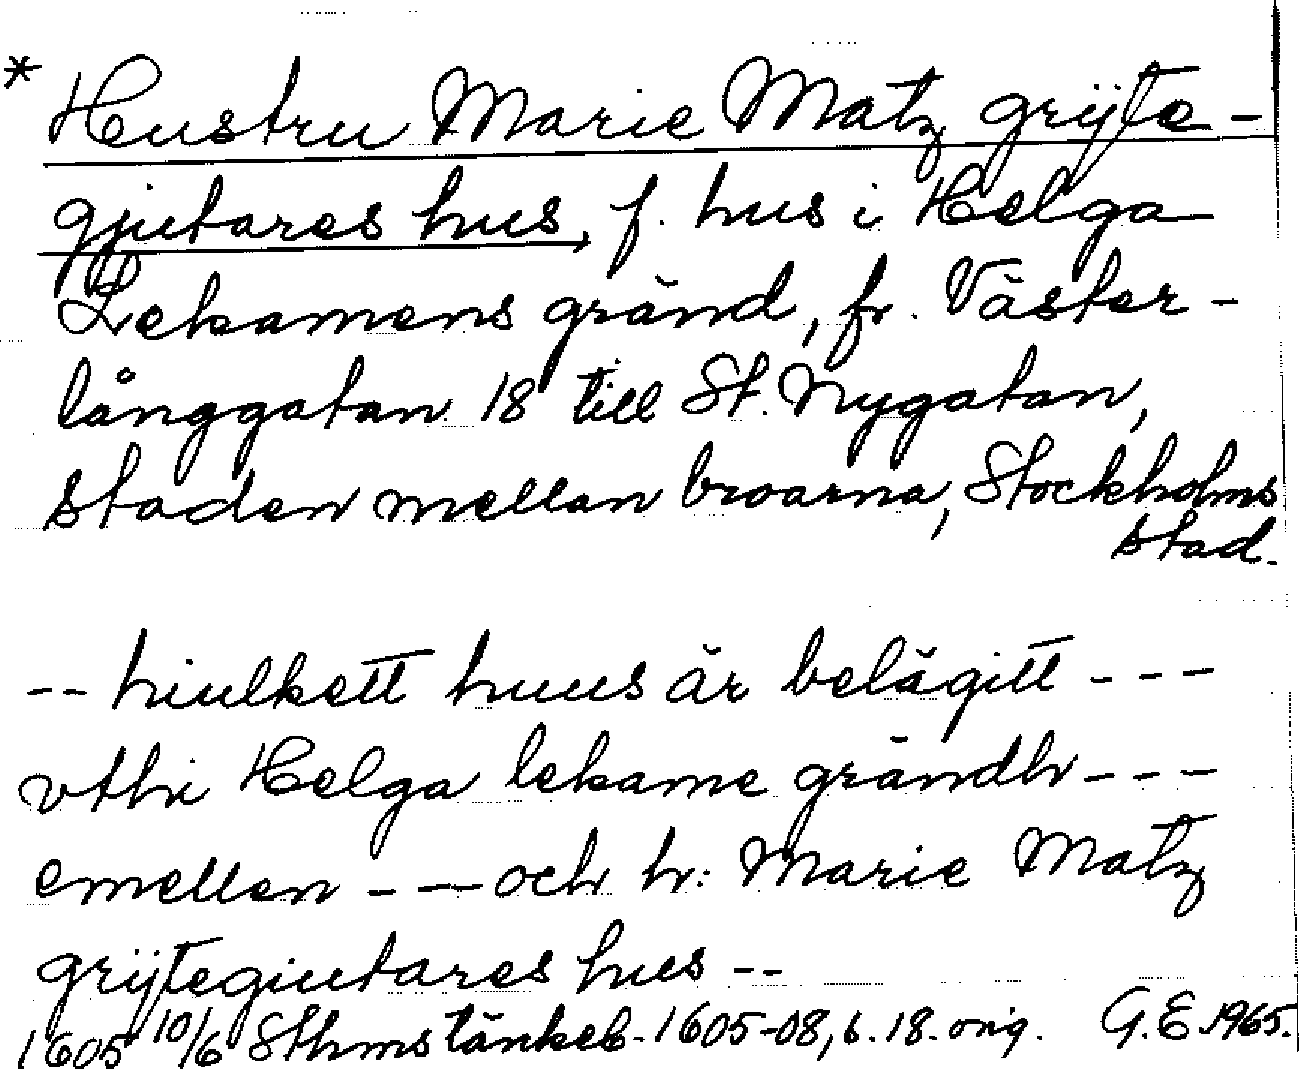 * Hustru Marie Matz grijte-
gjutares hus, f. hus i Helga
Lekamens gränd, fr. Väster-
långgatan 18 till St. Nygatan,
staden mellan broarna, Stockholms
stad.
-- hiulkett huus är belägitt ---
vthi Helga lekame grändh ---
emellen --- och h: Marie Matz
grijtegiutares hus --
1605 10/6 Sthms tänkeb. 1605-08, s. 18. orig. G.E. 1965.